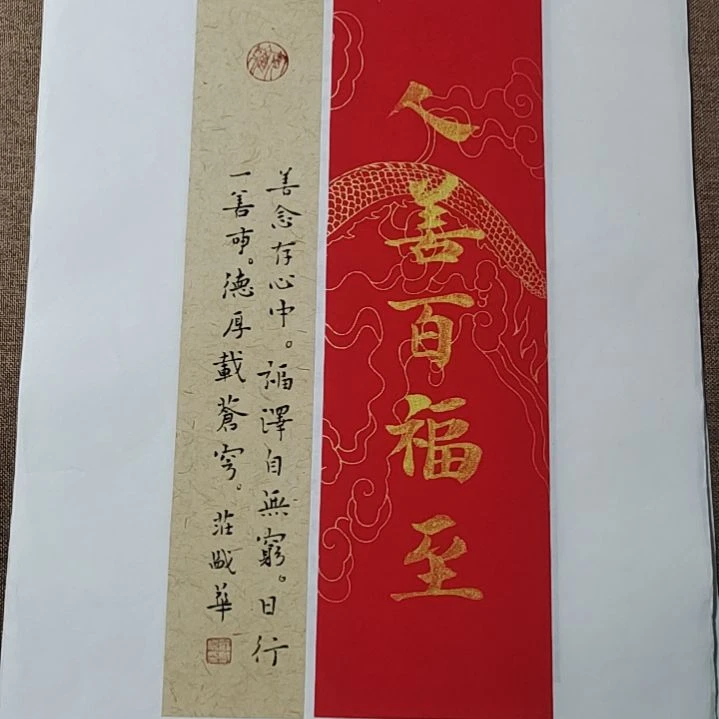 人善百福至
善念存心中。福澤自無窮。日行
一善事。德厚載蒼穹。莊晟華